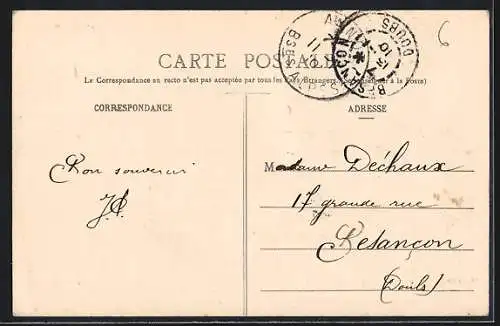 CARTE POSTALE
La Correspondance au recto n'est pas acceptée par tous les Pays Étrangers. (Se renseigner à la Poste)
CORRESPONDANCE
ADRESSE
Bon souvenir
Madame Déchaux
17 grande rue
Besançon
(Doubs)
DOUBS
6